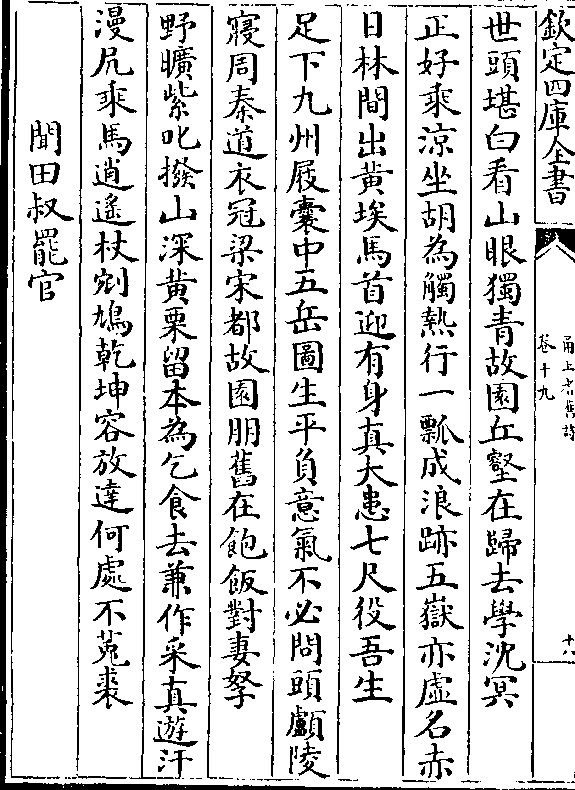 欽定四庫全書
甬上耆舊詩
卷十九
十八
世頭堪白看山眼獨青故園丘壑在歸去學沈冥
正好乘涼坐胡為觸熱行一瓢成浪跡五嶽亦虛名赤
日林間出黃埃馬首迎有身真大患七尺役吾生
足下九州屐囊中五岳圖生平負意氣不必問頭顱陵
寢周秦道衣冠梁宋都故園朋舊在飽飯對妻孥
野曠紫叱撥山深黃栗留本為乞食去兼作采真遊汗
漫尻乘馬逍遙杖刻鳩乾坤容放達何處不菟裘
聞田叔罷官